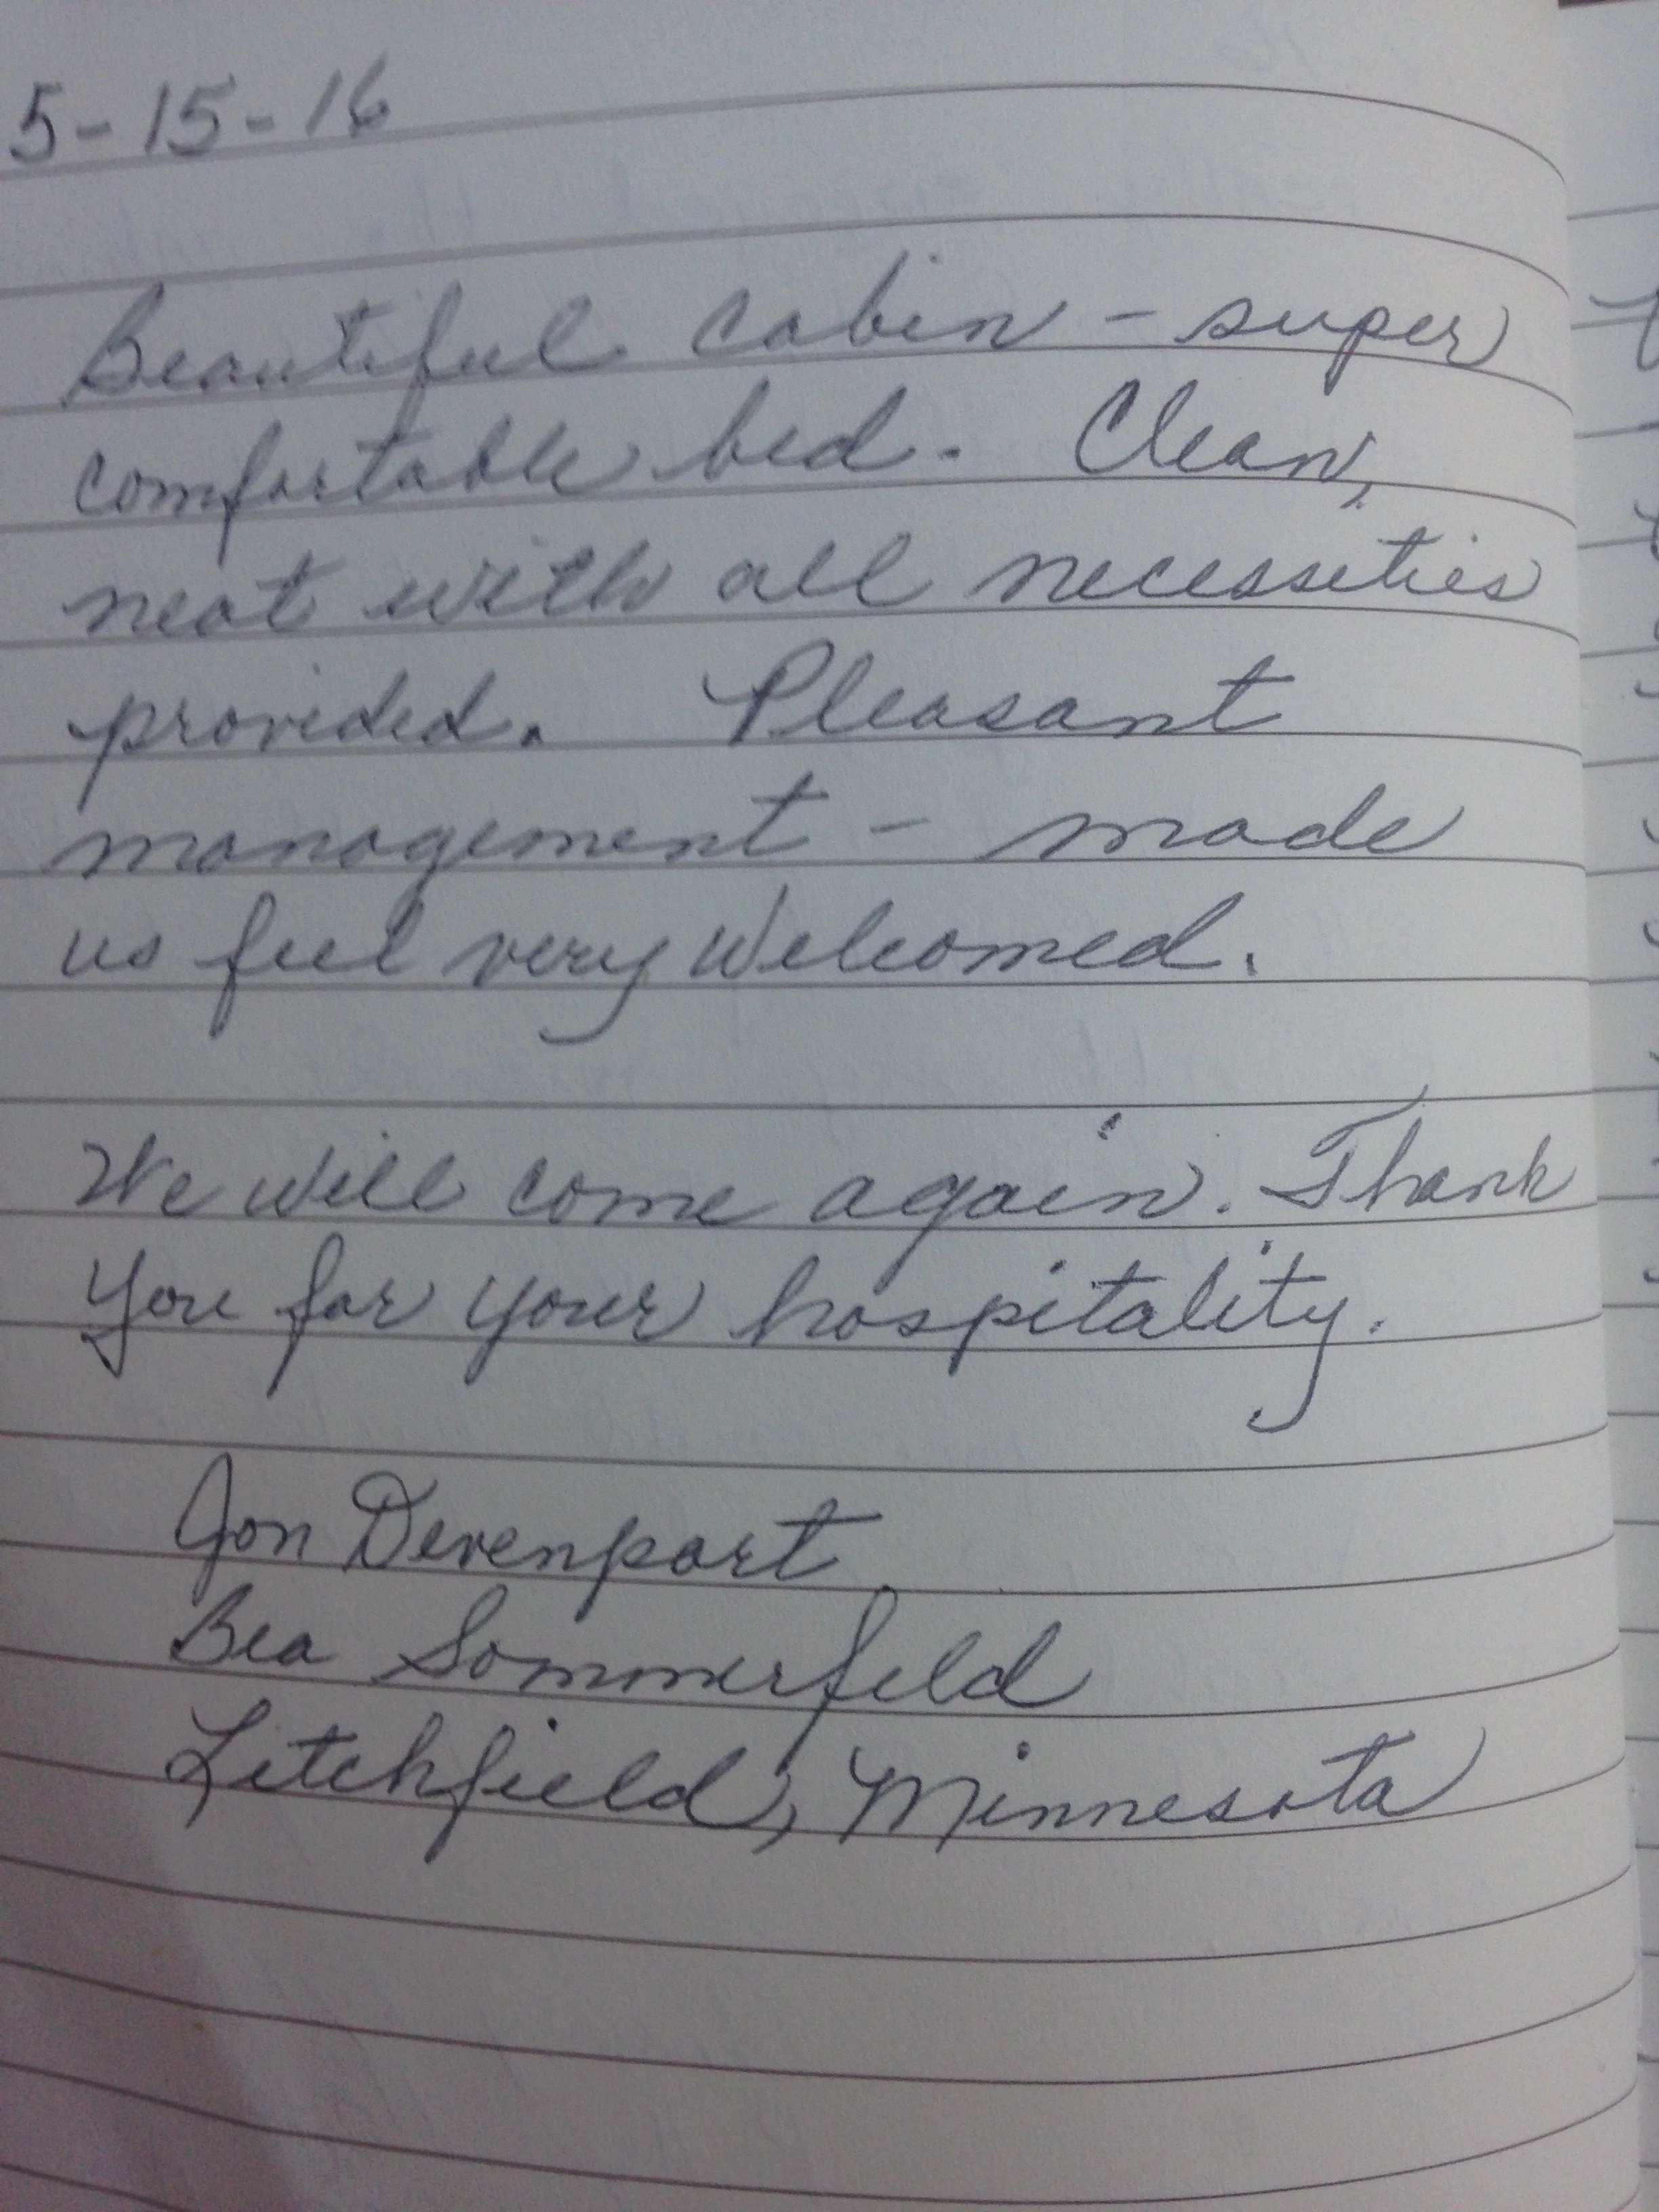 5-15-16
Beautiful cabin - super
comfortable bed. Clean,
neat with all necessities
provided. Pleasant
management - made
us feel very welcomed.
We will come again. Thank
you for your hospitality.
Jon Devenport
Bea Sommerfeld
Litchfield, Minnesota